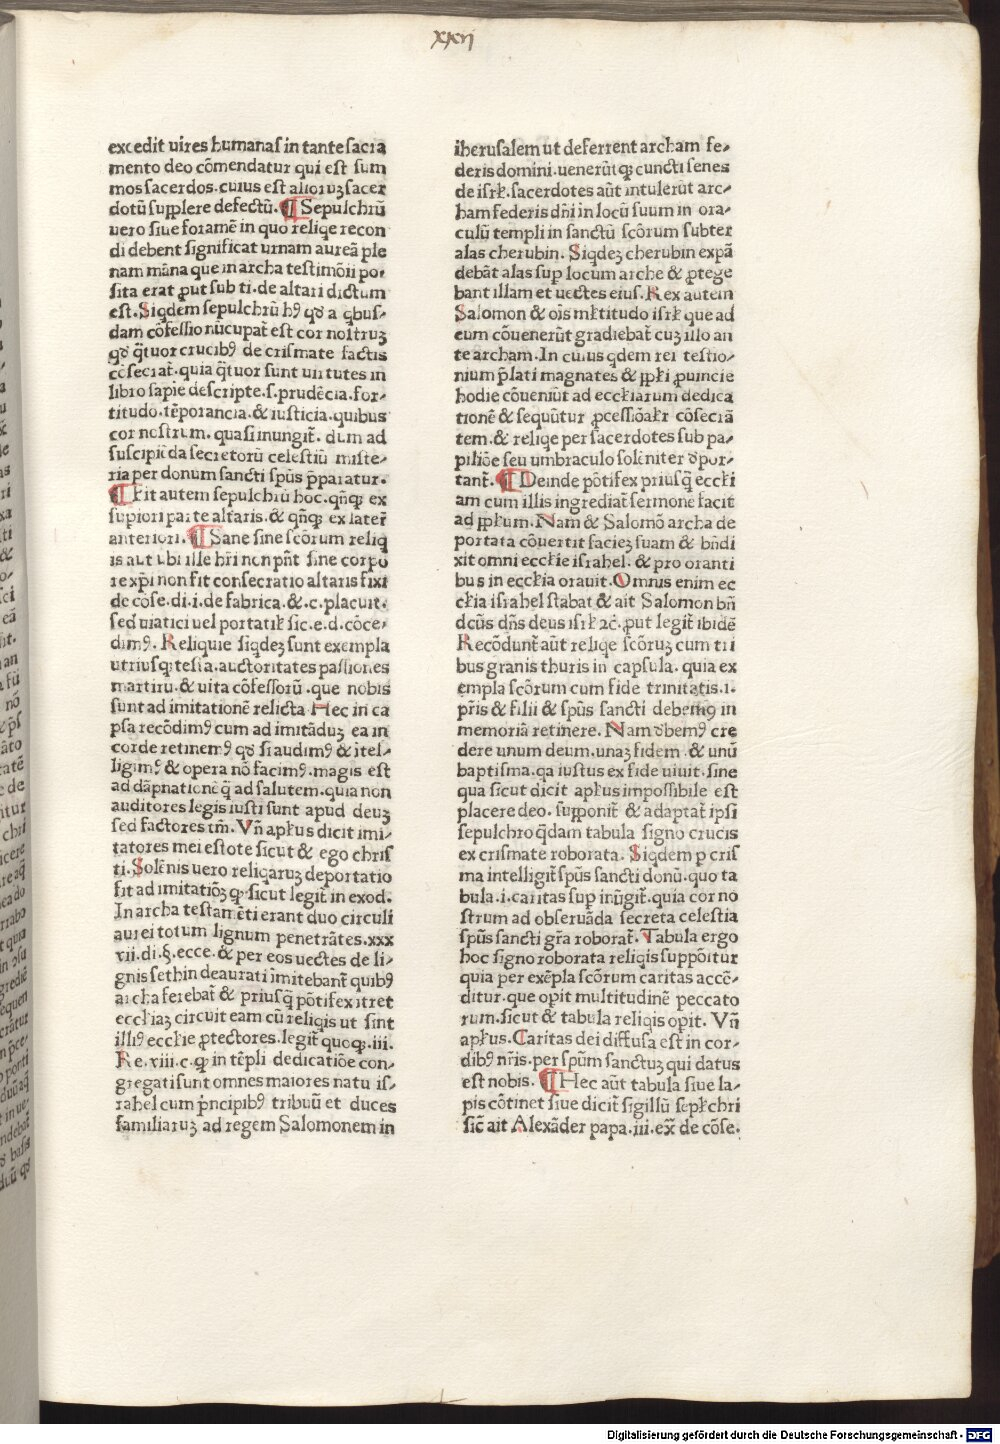 xxii
excedit uires humanas in tante sacra
mento deo cōmendatur qui est sum
mos sacerdos. cuius est alioruꝫ sacer
dotū supplere defectū. ¶ Sepulchrū
uero siue foramē in quo reliqe recon
di debent significat urnam aureā ple
nam māna que in archa testimōii po⸗
sita erat ꝓut sub ti. de altari dictum
est. Siqdem sepulchrū hꝰ qd a qbus⸗
dam cōfessio nūcupat̄ est cor nostruꝫ
qd q̄tuor crucibꝰ de crismate factis
cōsecrat̄. quia q̄tuor sunt uirtutes in
libro sapiē descripte. s. prudēcia. for⸗
titudo. tēporancia. & iusticia. quibus
cor nostrum. quasi inungit̄. dum ad
suscipiēda secretorū celestiū miste⸗
ria per donum sancti spūs p̄paratur.
¶ Fit autem sepulchrū hoc. qn̄qꝫ ex
supiori parte altaris. & qn̄qꝫ ex later̄
anteriori. ¶ Sane sine scōrum reliq
is aut ubi ille hr̄i non pn̄t sine corpo
re xp̄i non fit consecratio altaris fixi
de cōse. di. i. de fabrica. &. c. placuit.
sed uiatici uel portatił sic̄. e. d. cōce⸗
dimꝰ. Reliquie siqdeꝫ sunt exempla
utriusqꝫ testa. auctoritates passiones
martiru. & uita cōfessorū. que nobis
sunt ad imitationē relicta Hec in ca
psa recōdimꝰ cum ad imitāduꝫ ea in
corde retinemꝰ qd si audimꝰ & ītel⸗
ligimꝰ & opera nō facimꝰ. magis est
ad dāpnationē q̄ ad salutem. quia non
auditores legis iusti sunt apud deuꝫ
sed factores tm̄. Vn̄ apłus dicit imi⸗
tatores mei estote sicut & ego chris
ti. Solēnis uero reliqaruꝫ deportatio
fit ad imitatiōꝫ qꝫ sicut legit̄ in exod.
In archa testamēti erant duo circuli
aurei totum lignum penetrātes. xxx
vii. di. §. ecce. & per eos uectes de li⸗
gnis sethin deaurati īmitebant̄ quibꝰ
archa ferebat̄ & priusq̄ pōtifex itret
eccłiaꝫ circuit eam cū reliqis ut sint
illiꝰ eccłie ꝓtectores. legit̄ quoqꝫ. iii.
Re. viii. c. qꝫ in tēpli dedicatiōe con⸗
gregati sunt omnes maiores natu is⸗
rahel cum p̄ncipibꝰ tribuū et duces
familiaruꝫ ad regem Salomonem in
iherusalem ut deferrent archam fe⸗
deris domini. uenerūt qꝫ cuncti senes
de isrł. sacerdotes aūt intulerūt arc⸗
ham federis dn̄i in locū suum in ora⸗
culū templi in sanctū scōrum subter
alas cherubin. Siqdeꝫ cherubin expā
debāt alas sup locum arche & ꝓtege
bant illam et uectes eius. Rex autem
Salomon & oīs młtitudo isrł que ad
eum cōuenerūt gradiebat̄ cuꝫ illo an
te archam. In cuius qdem rei testio⸗
nium p̄lati magnates & ppłi ꝓuincie
hodie cōueniūt ad eccłiarum dedica
tionē & sequūtur ꝓcessiōałr cōsecrā
tem. & reliqe per sacerdotes sub pa⸗
piliōe seu umbraculo solēniter dpor⸗
tant̄. ¶ Deinde pōtifex priusq̄ eccłi
am cum illis ingrediat̄ sermonē facit
ad ppłum. Nam & Salomō archa de
portata cōuertit facieꝫ suam & bn̄di
xit omni eccłie israhel. & pro oranti
bus in eccłia orauit. Omnis enim ec
cłia israhel stabat & ait Salomon bn̄
dcūs dn̄s deus isrł ac̄. ꝓut legit̄ ibidē
Recōdunt̄ aūt reliqe scōruꝫ cum tri
bus granis thuris in capsula. quia ex
empla scōrum cum fide trinitatis. i.
pr̄is & filii & spūs sancti debemꝰ in
memoriā retinere. Nam dbemꝰ cre
dere unum deum. unaꝫ fidem. & unū
baptisma. qa iustus ex fide uiuit. sine
qua sicut dicit apłus impossibile est
placere deo. supponit̄ & adaptat̄ ipsi
sepulchro q̄dam tabula signo crucis
ex crismate roborata. Siqdem p cris
ma intelligit̄ spūs sancti donū. quo ta
bula. i. caritas sup īn̄git̄. quia cor no
strum ad obseruāda secreta celestia
spūs sancti gr̄a roborat̄. Tabula ergo
hoc signo roborata reliqis suppōitur
quia per exēpla scōrum caritas accē⸗
ditur. que opit multitudinē peccato
rum. sicut & tabula reliqis opit. Vn̄
apłus. Caritas dei diffusa est in cor⸗
dibꝰ nr̄is. per spūm sanctuꝫ qui datus
est nobis. ¶ Hec aūt tabula siue la⸗
pis cōtinet siue dicit̄ sigillū sepłchri
sic̄ ait Alexāder papa. iii. ex̄ de cōse.
Digitalisierung gefördert durch die Deutsche Forschungsgemeinschaft - DFG